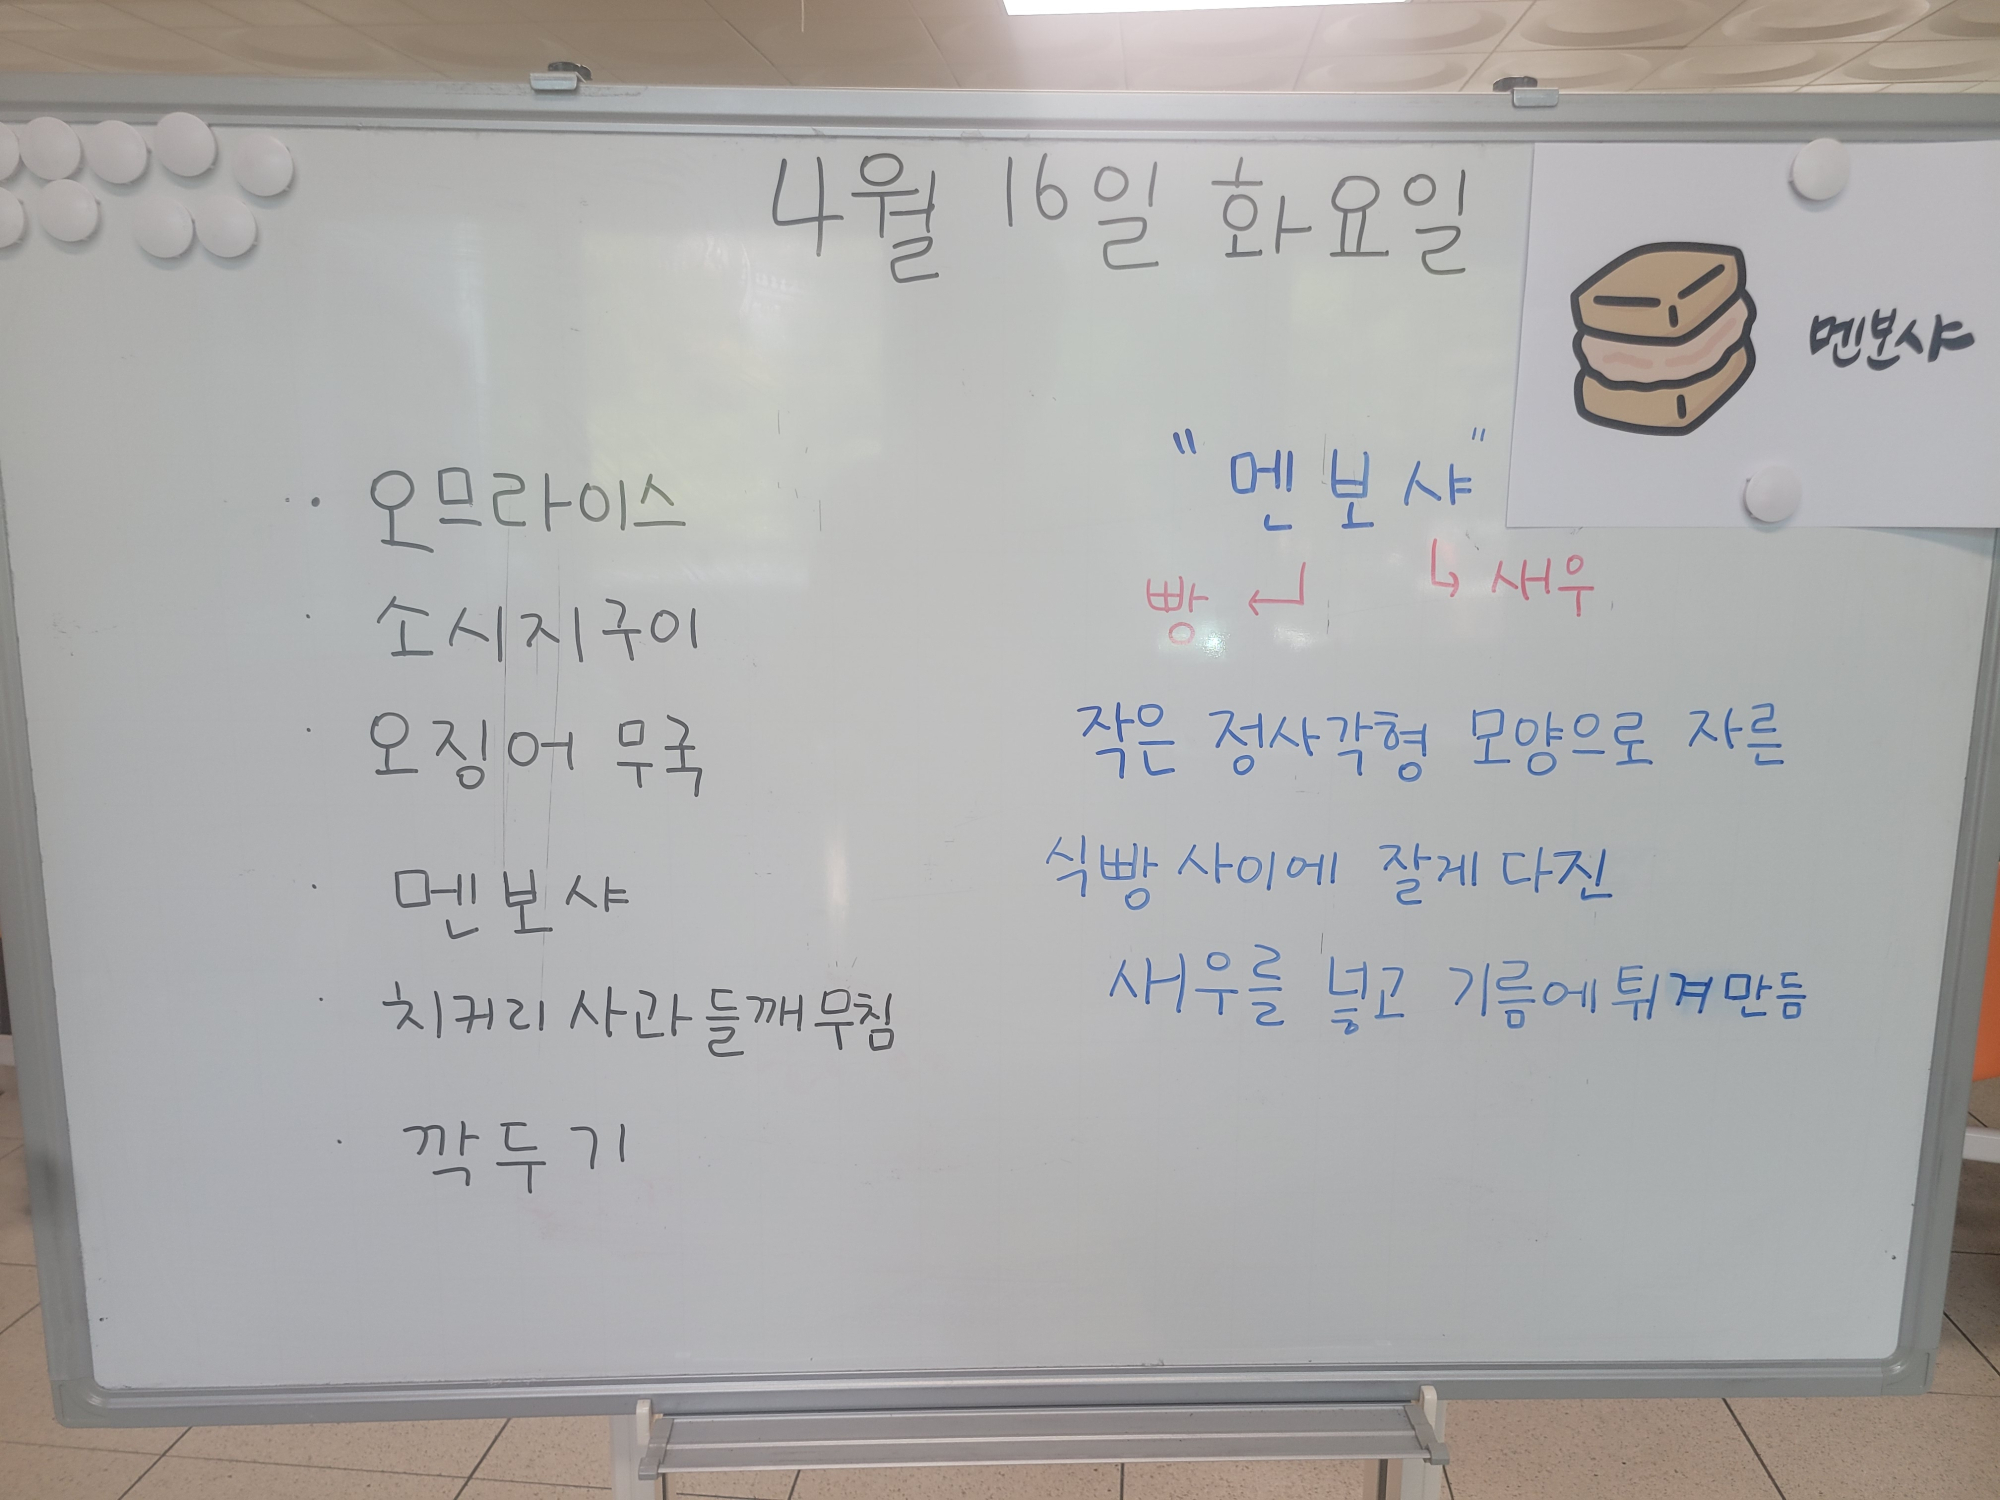 4월 16일 화요일
멘보샤
· 오므라이스
· 소시지구이
· 오징어 무국
· 멘보샤
· 치커리 사과 들깨무침
· 깍두기
"멘보샤"
빵 ↵ ↳ 새우
작은 정사각형 모양으로 자른
식빵 사이에 잘게 다진
새우를 넣고 기름에 튀겨 만듬